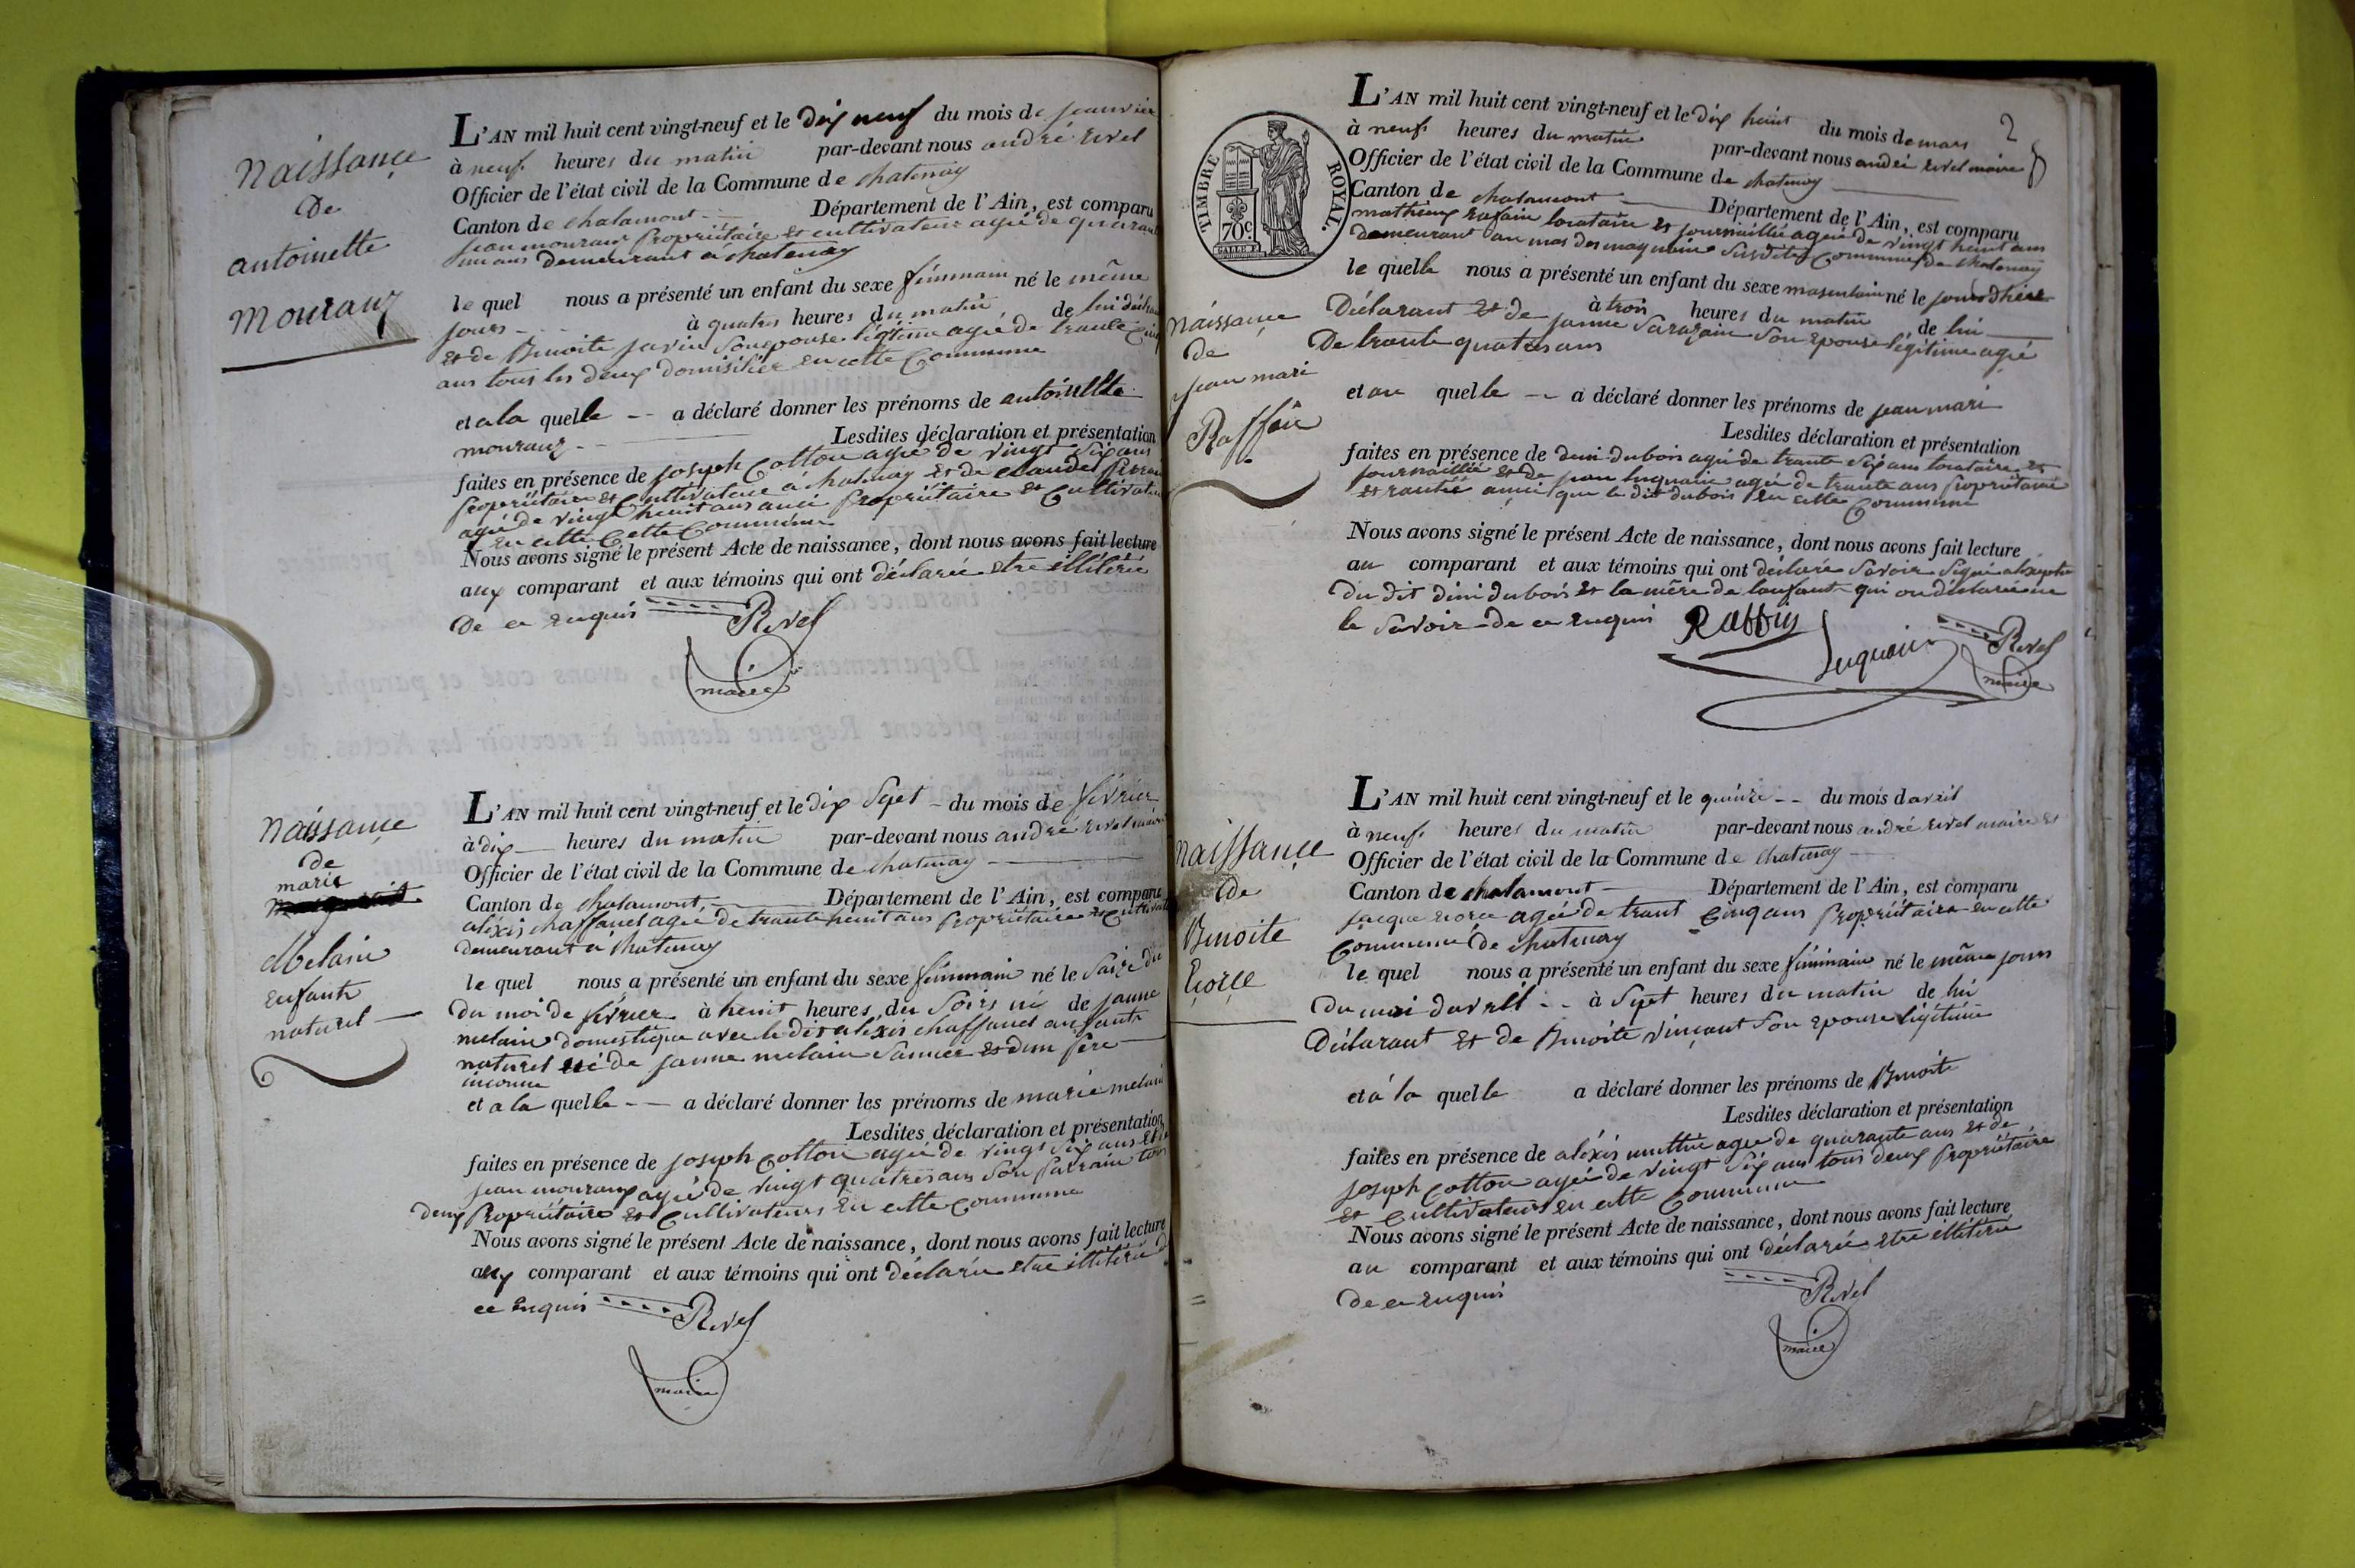 Naissançe
De
antoinette
Mouraux
L'AN mil huit cent vingt-neuf et le dix neuf du mois de jeanvier
à neuf heures du matin par-devant nous andré rivel
Officier de l'état civil de la Commune de chatenay
Canton de chalamont Département de l'Ain, est comparu
jean mouraux propriétaire et cultivateur agé de quarante
ans demeurant a chatenay
le quel nous a présenté un enfant du sexe féminain né le même
jours à quatres heures du matin de lui déclarant
et de Benoite son epouse légitime agée de trante cinq
ans tous les deux domisiliés en cette Commune
et a la quelle -- a déclaré donner les prénoms de antoinette
mouraux Lesdites déclaration et présentation
faites en présence de joseph Cotton agé de vingt six ans
propriétaire et Cultivateur a chatenay et de claude
agé de vingt heuit ans aucî propriétaire et Cultivateur
en cette Cette Commune
Nous avons signé le présent Acte de naissance, dont nous avons fait lecture
aux comparant et aux témoins qui ont déclaré etre illitéré
De ce requis Rivel
maire
Naissançe
de
marie
Melain
enfant
naturel
L'AN mil huit cent vingt-neuf et le dix sept - du mois de février
à dix heures du matin par-devant nous andré rivel maire
Officier de l'état civil de la Commune de chatenay
Canton de chalamont Département de l'Ain, est comparu
aléxis chaffanel agé de trante heuit ans propriétaire et Cultivateur
demeurant a chatenay
le quel nous a présenté un enfant du sexe féminain né le saize du
du moi de février à heuit heures du soirs de janne
melain domestique avec le dit aléxis chaffanel anfant
naturel né de janne melain et dun père
inconnu
et a la quelle -- a déclaré donner les prénoms de marie melain
Lesdites déclaration et présentation
faites en présence de joseph Cotton agé de vingt six ans et de
jean mouraux agé de vingt quatres ans son parrain tous
deux propriétaire et Cultivateurs en cette Commune
Nous avons signé le présent Acte de naissance, dont nous avons fait lecture
aux comparant et aux témoins qui ont déclaré etre illitéré de
ce requis Rivel
maire
2
TIMBRE ROYAL.
70c.
L'AN mil huit cent vingt-neuf et le dix heuit du mois de mars
à neuf heures du matin par-devant nous andré rivel maire
Officier de l'état civil de la Commune de chatenay
Canton de chalamont Département de l'Ain, est comparu
mathieux rafain locataire et journaillié agée de vingt heuit ans
demeurant au mas des susdite Commune de chatenay
le quelle nous a présenté un enfant du sexe masculain né le jours dhier
à trois heures du matin de lui
Déclarant et de janne Sarazain son epouse légitime agé
De trante quatres ans
Naissançe
de
jean mari
Raffin
et au quelle -- a déclaré donner les prénoms de jean mari
Lesdites déclaration et présentation
faites en présence de deni dubois agé de trante six ans locataire et
journaillié et de jean luquain agé de trante ans propriétaire
et rantié aucî que le dit dubois en cette Commune
Nous avons signé le présent Acte de naissance, dont nous avons fait lecture
au comparant et aux témoins qui ont déclaré savoir signé alexepte
du dit deni dubois et la mère de lanfant qui on déclaré ne
le savoir de ce requis Raffin
luquain Rivel
maire
Naissançe
de
Benoite
Eçorçe
L'AN mil huit cent vingt-neuf et le quinze -- du mois d avril
à neuf heures du matin par-devant nous andré rivel maire et
Officier de l'état civil de la Commune de chatenay
Canton de chalamont Département de l'Ain, est comparu
jacque agée de trant Cinq ans propriétaire en cette
Commune de chatenay
le quel nous a présenté un enfant du sexe féminain né le même jours
du moi davril -- à sept heures du matin de lui
Déclarant et de Benoite vinçant son epouse légitime
et à la quelle a déclaré donner les prénoms de Benoite
Lesdites déclaration et présentation
faites en présence de aléxis agée de quarante ans et de
joseph Cotton agée de vingt six ans tous deux propriétaire
et Cultivateurs en cette Commune
Nous avons signé le présent Acte de naissance, dont nous avons fait lecture
au comparant et aux témoins qui ont déclaré etre illitéré
De ce requis Rivel
maire